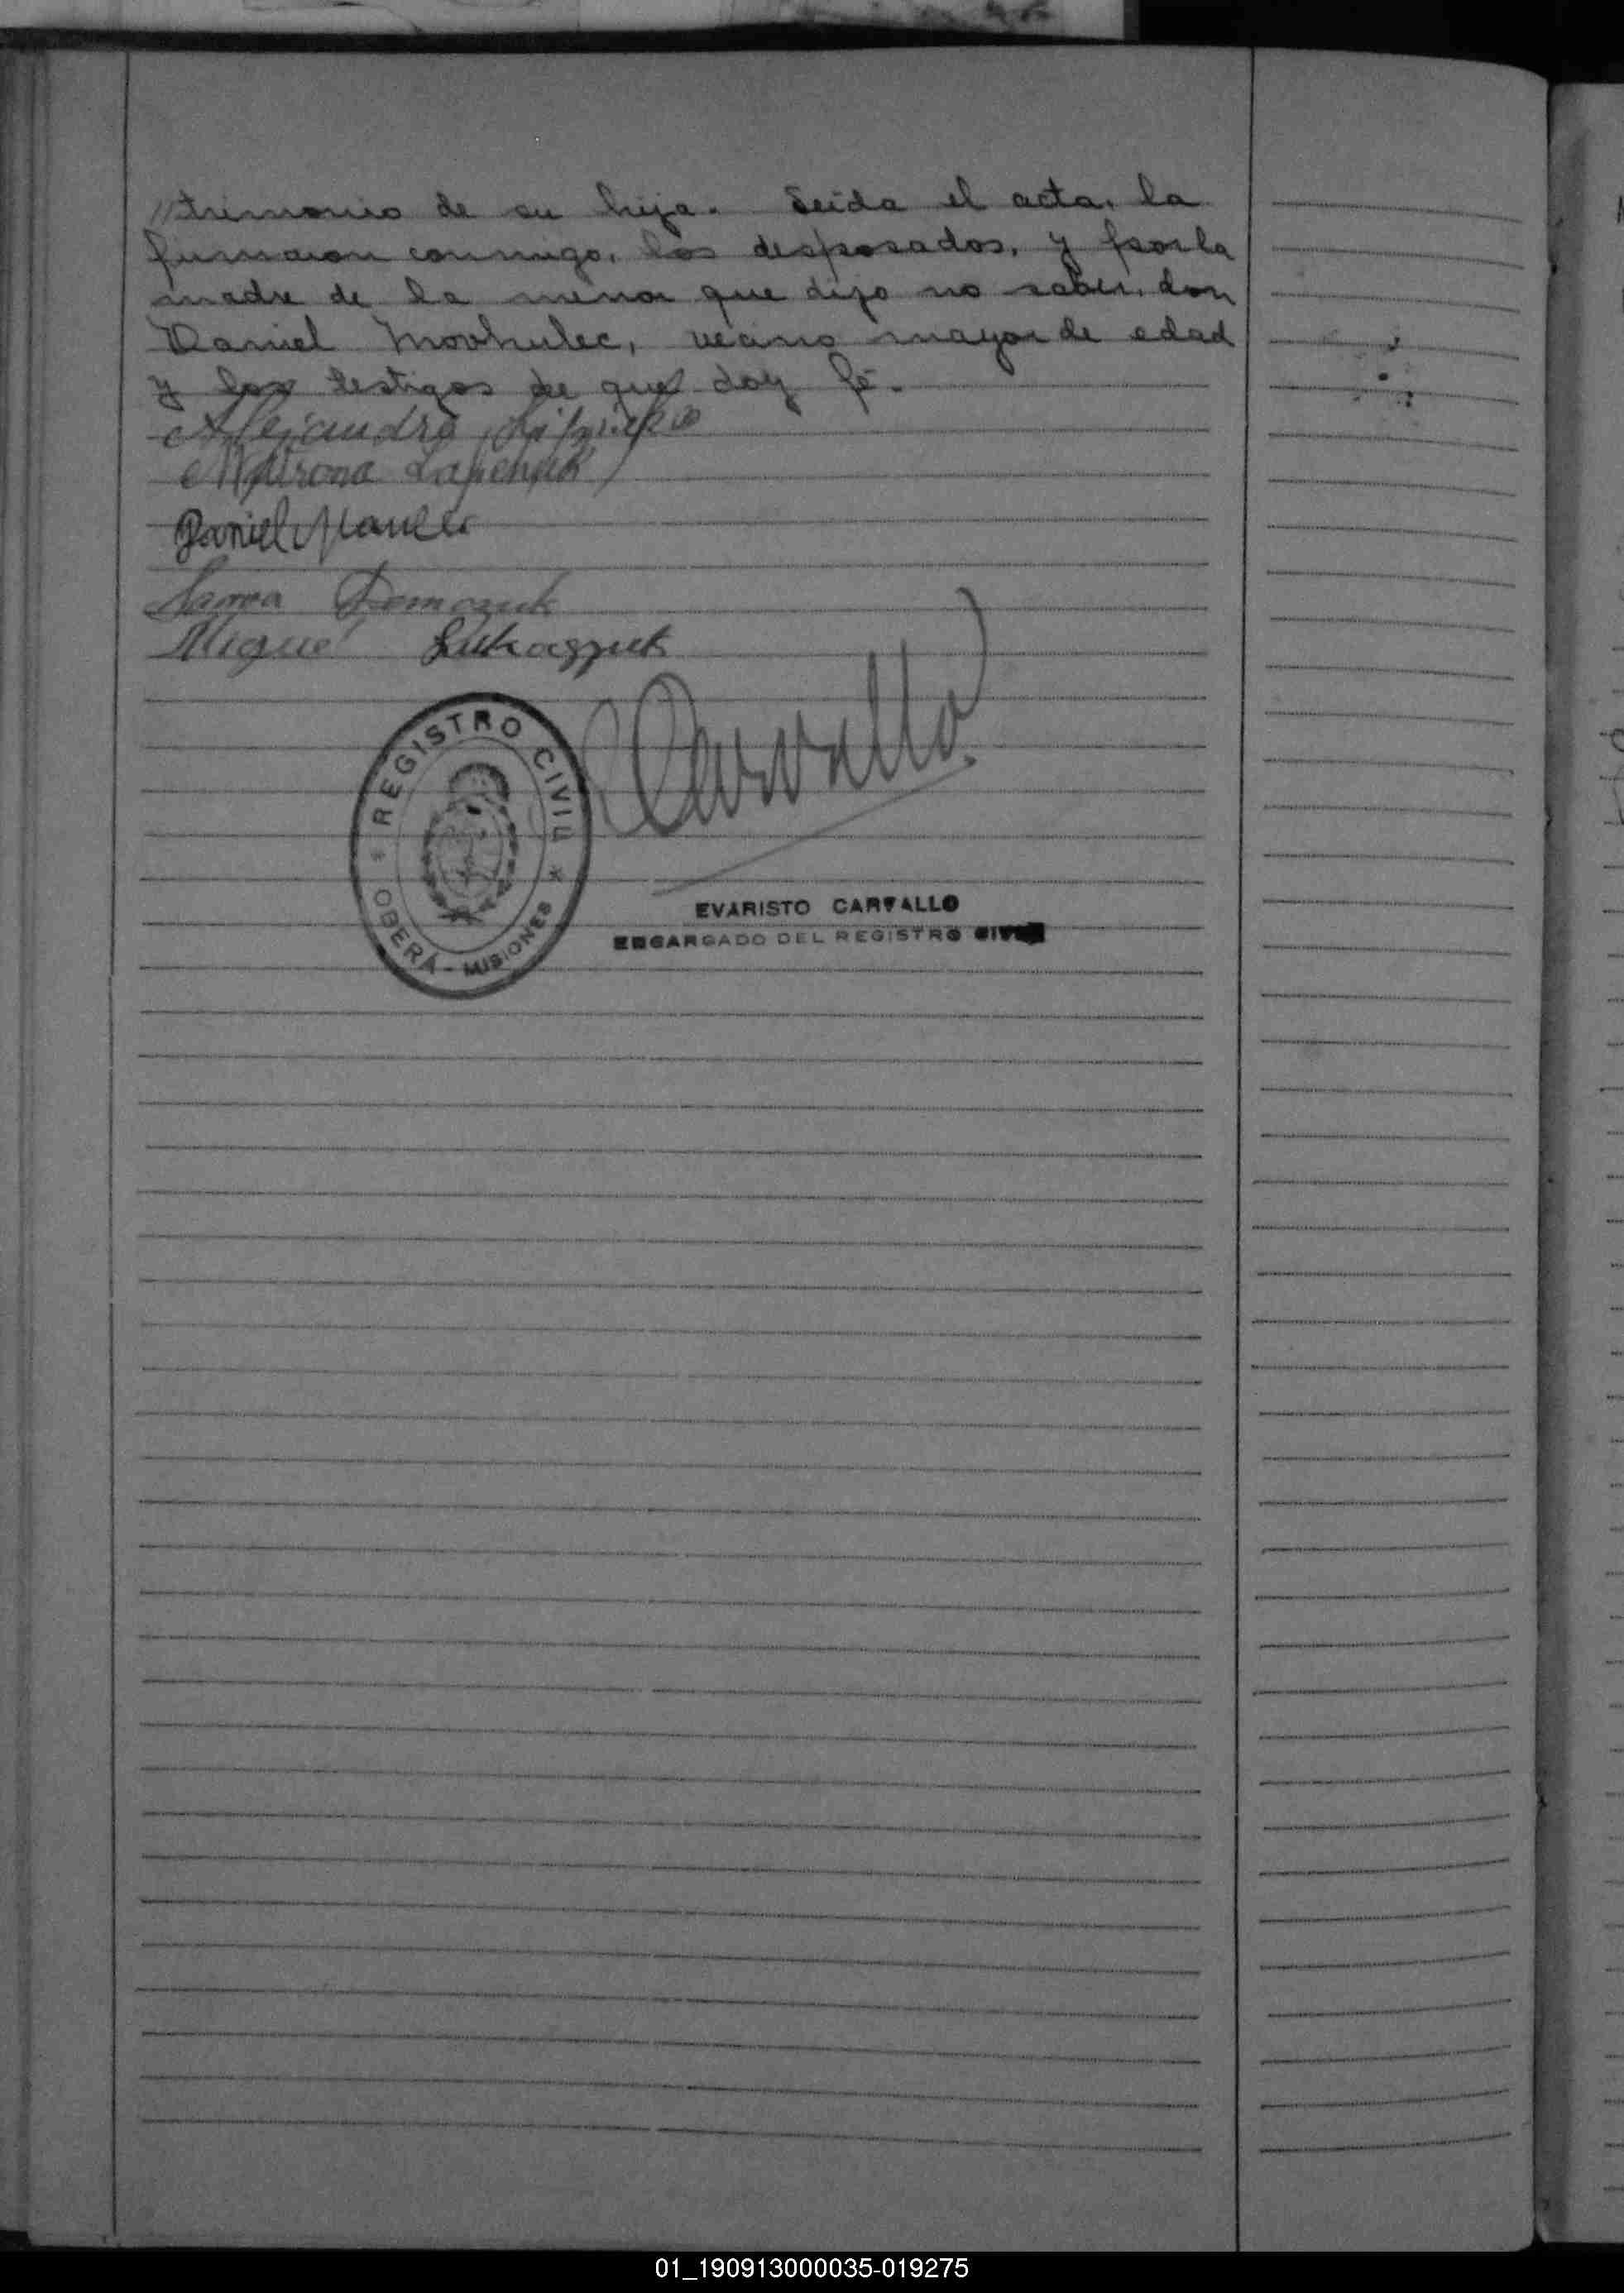 //trimonio de su hija. Leída el acta, la
firmaron conmigo, los desposados, y por la
madre de la menor que dijo no saber, don
Daniel Movhulec, vecino mayor de edad
y los testigos de que doy fé.
Alejandro
Matrona Lapenuk
Daniel
Demczuk
Miguel Lukaszuk
Carvallo
REGISTRO CIVIL
* OBERÁ - MISIONES *
EVARISTO CARVALLO
ENCARGADO DEL REGISTRO CIVIL
01_190913000035-019275